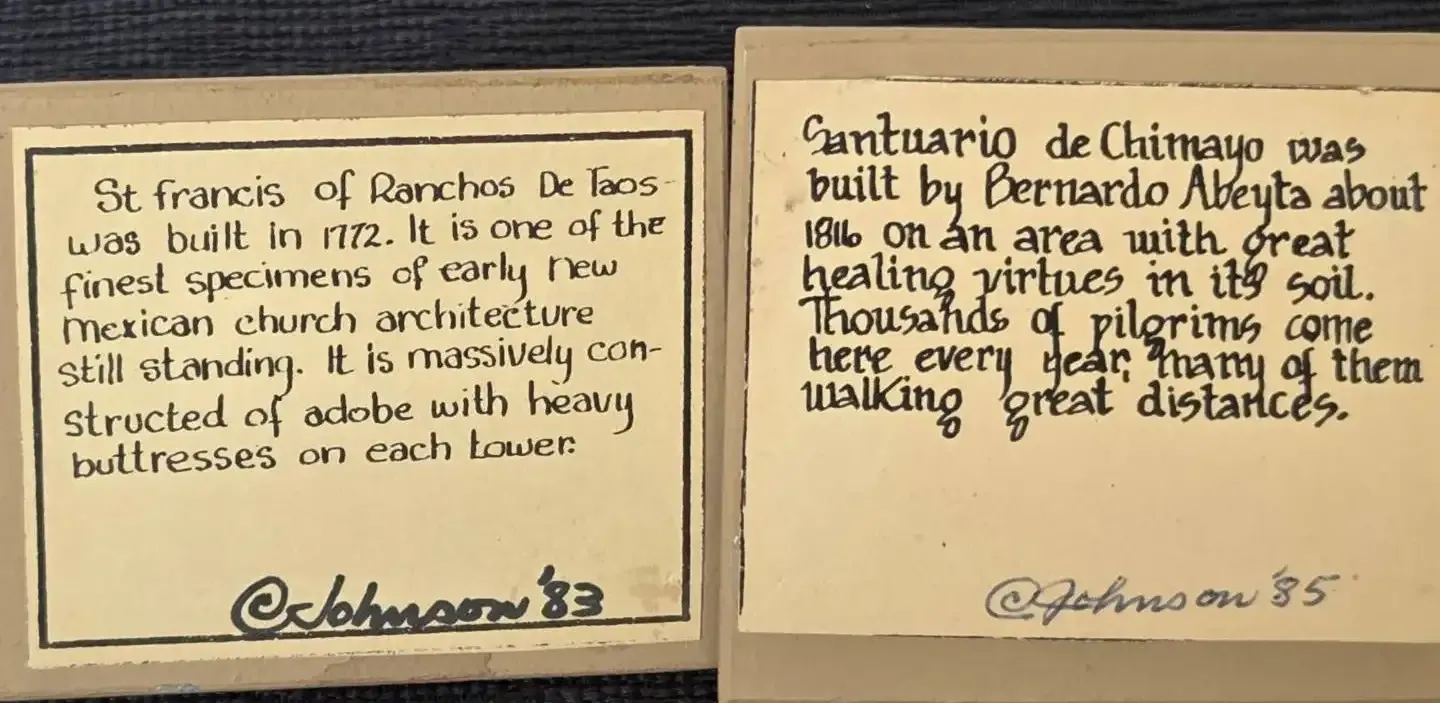 St francis of Ranchos De Taos
was built in 1772. It is one of the
finest specimens of early new
mexican church architecture
still standing. It is massively con-
structed of adobe with heavy
buttresses on each tower.
©Johnson '83
Santuario de Chimayo was
built by Bernardo Abeyta about
1816 on an area with great
healing virtues in its soil.
Thousands of pilgrims come
here every year, many of them
walking great distances.
©Johnson '85